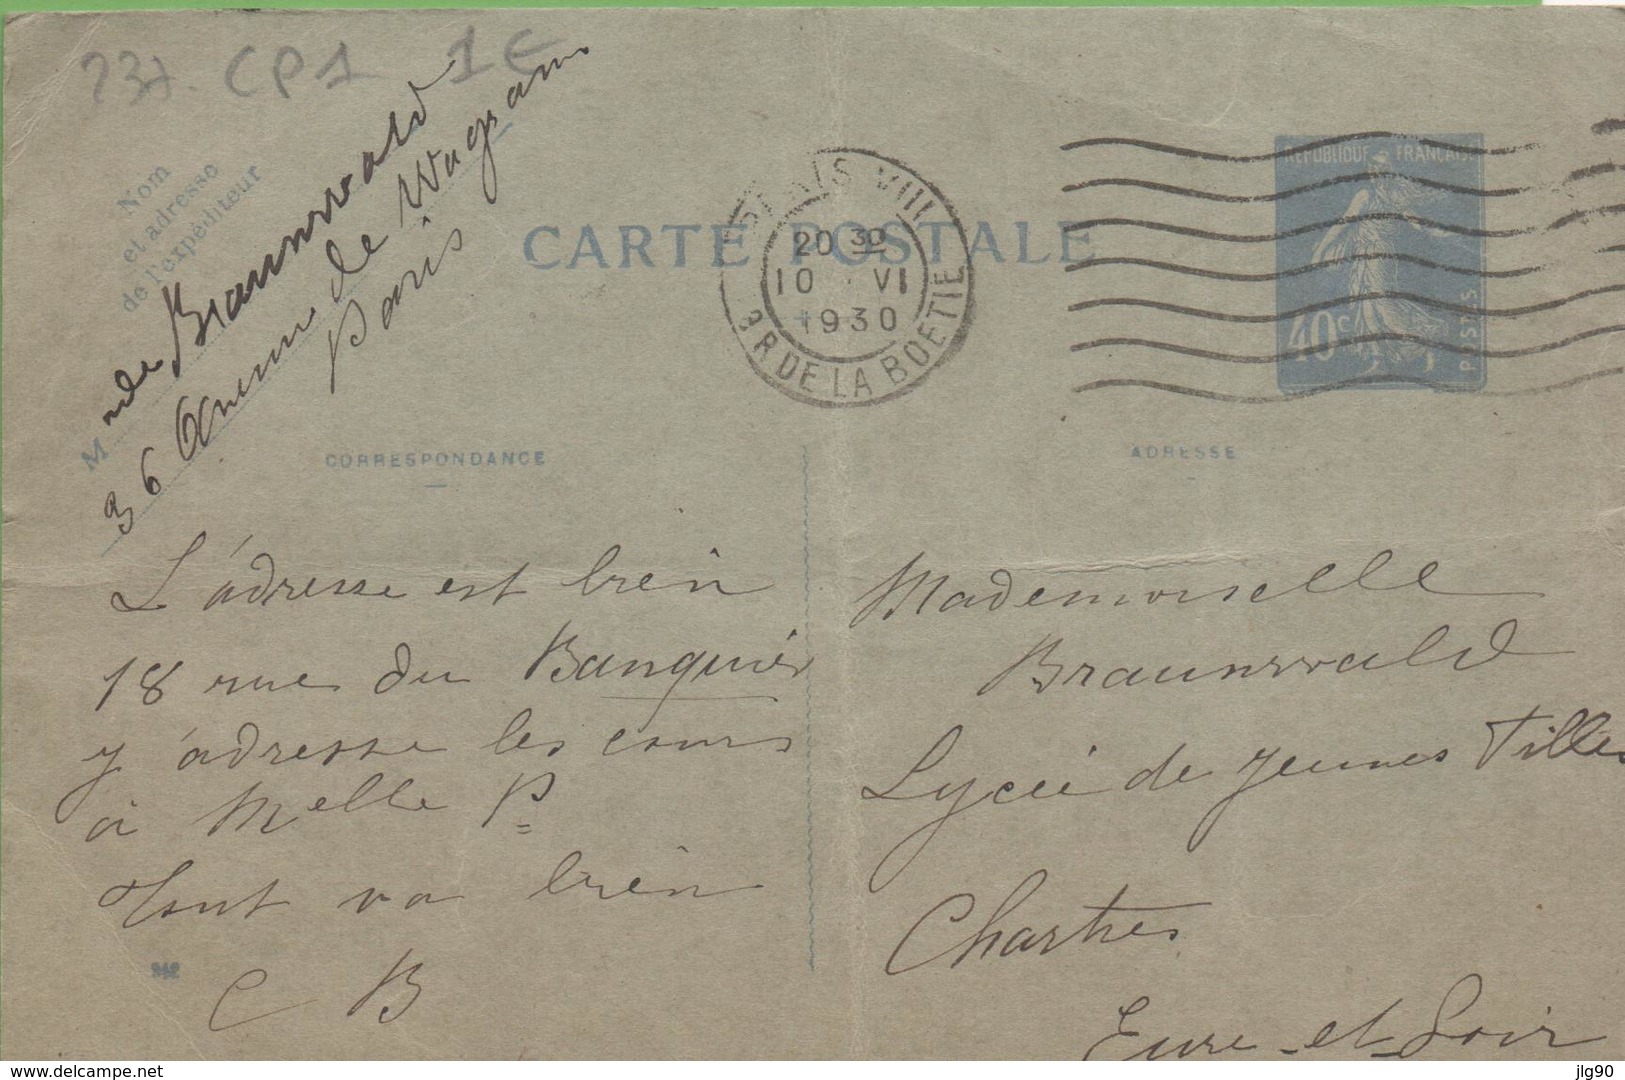 237. CP1 1E
Nom
et adresse
de l'expéditeur
Mme de Braunwald
36 Avenue de Wagram
Paris
CARTE POSTALE
PARIS VIII
20 30
10 VI
1930
3 R DE LA BOETIE
REPUBLIQUE FRANÇAISE
40c
POSTES
CORRESPONDANCE
ADRESSE
L'adresse est bien
18 rue du Banquier
y adresse les cours
à Melle P=
tout va bien
C B
Mademoiselle
Braunwald
Lycée de jeunes Filles
Chartres
Eure-et-Loir
delcampe.net
jlg90